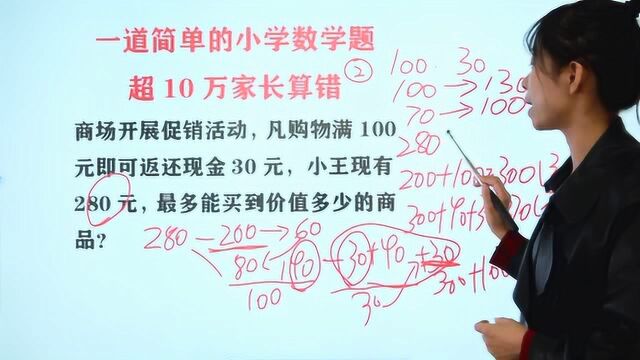 一道简单的小学数学题
超10万家长算错
②
商场开展促销活动，凡购物满100
元即可返还现金30元，小王现有
280元，最多能买到价值多少的商
品？
100 30
100→130
70→100
280
200+100=300
300+90+3
300+100
280-200→60
80
40
+30+40+30
100
30